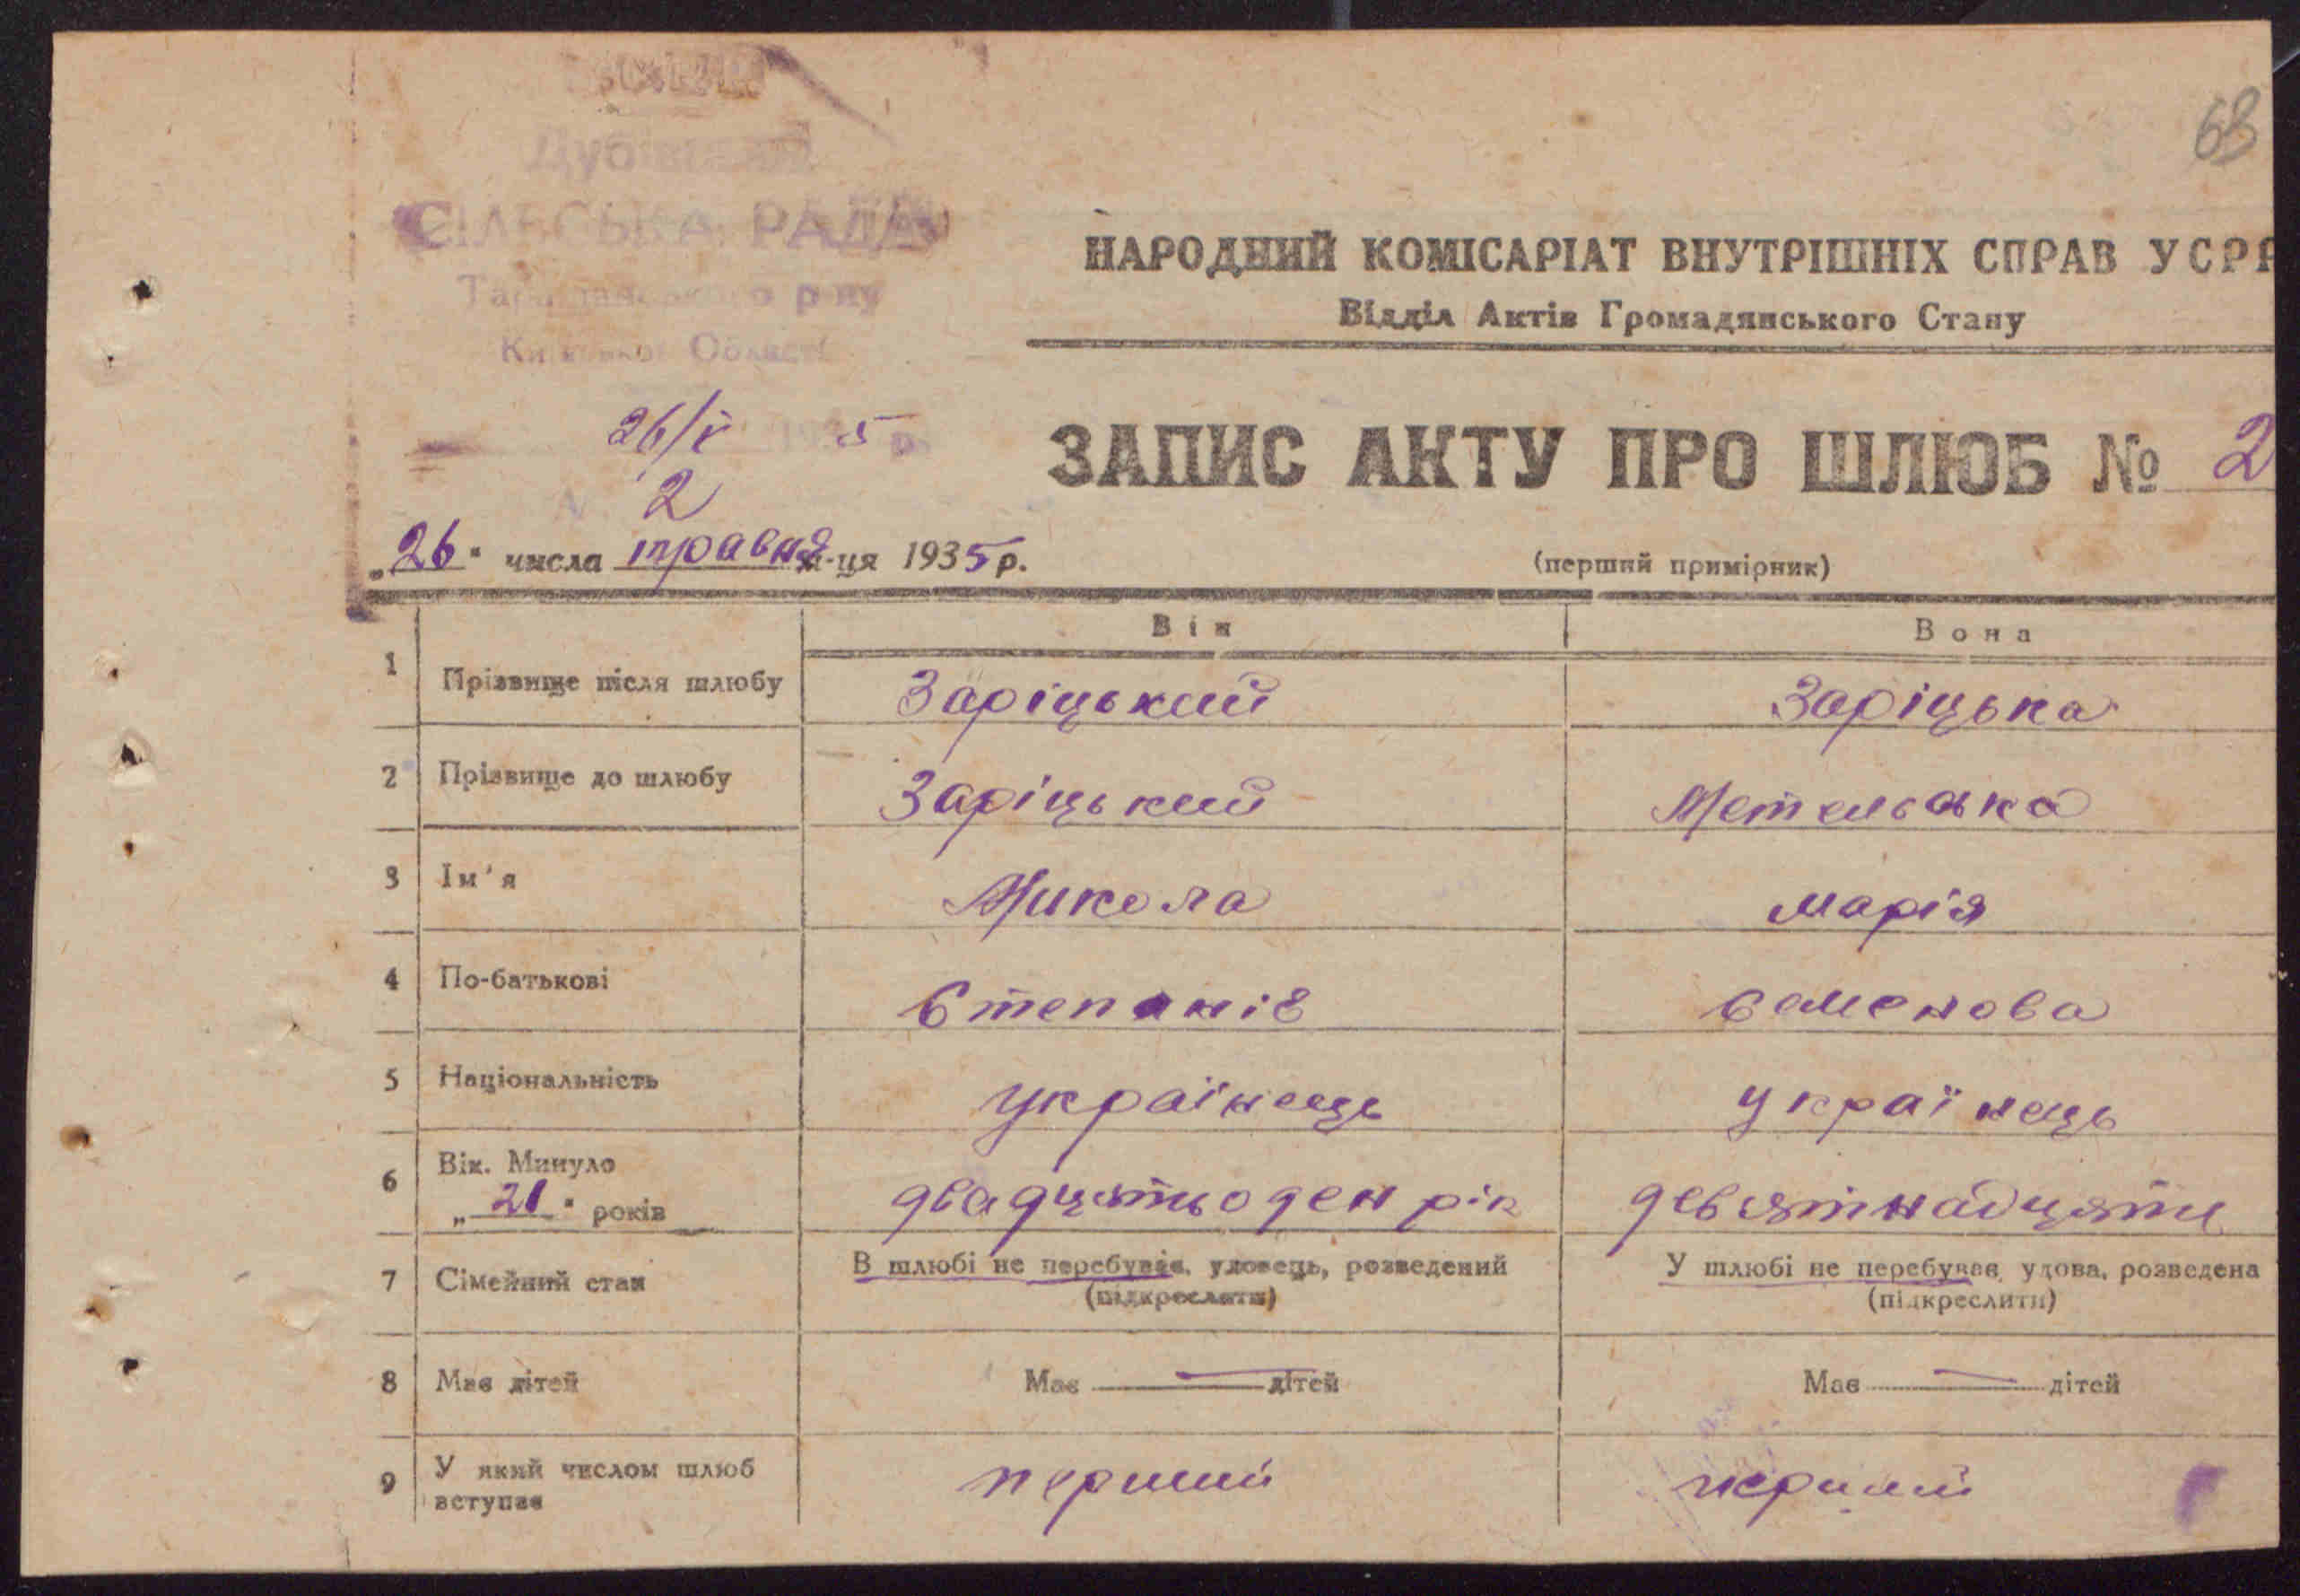 63
СІЛЬСЬКА РАДА
Області
26/V 1935 р
2
НАРОДНИЙ КОМІСАРІАТ ВНУТРІШНІХ СПРАВ УСРР
Відділ Актів Громадянського Стану
ЗАПИС АКТУ ПРО ШЛЮБ № 2
„26" числа травня м-ця 1935 р.
(перший примірник)
Він
Вона
1 Прізвище після шлюбу Заріцький Заріцька
2 Прізвище до шлюбу Заріцький
3 Ім'я Микола Марія
4 По-батькові Степанів Семенова
5 Національність українець українець
6 Вік. Минуло
„21" років двадцятьоден рік девятнадцяти
7 Сімейний стан В шлюбі не перебував, удовець, розведений У шлюбі не перебував удова, розведена
(підкреслити) (підкреслити)
8 Має дітей Має дітей Має дітей
9 У який числом шлюб перший перший
вступає